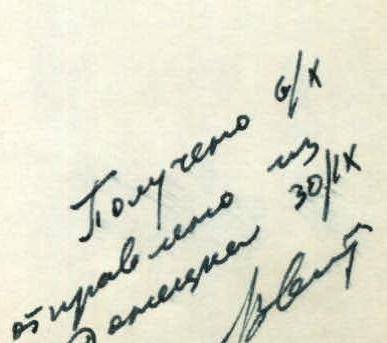 Получено 6/X
отправлено из
Донецка 30/IX